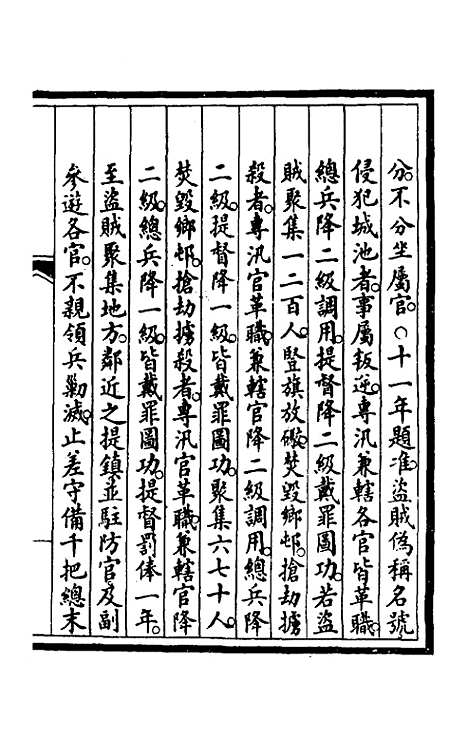 分。不分坐屬官。○十一年題准。盜賊偽稱名號
侵犯城池者。事屬叛逆。專汛兼轄各官皆革職。
總兵降二級調用。提督降二級戴罪圖功。若盜
賊聚集一二百人。豎旗放礮。焚毀鄉邨。搶劫擄
殺者。專汛官革職。兼轄官降二級調用。總兵降
二級。提督降一級。皆戴罪圖功。聚集六七十人。
焚毀鄉邨。搶劫擄殺者。專汛官革職。兼轄官降
二級。總兵降一級。皆戴罪圖功。提督罰俸一年。
至盜賊聚集地方。鄰近之提鎮並駐防官及副
參遊各官。不親領兵勦滅。止差守備千把總末